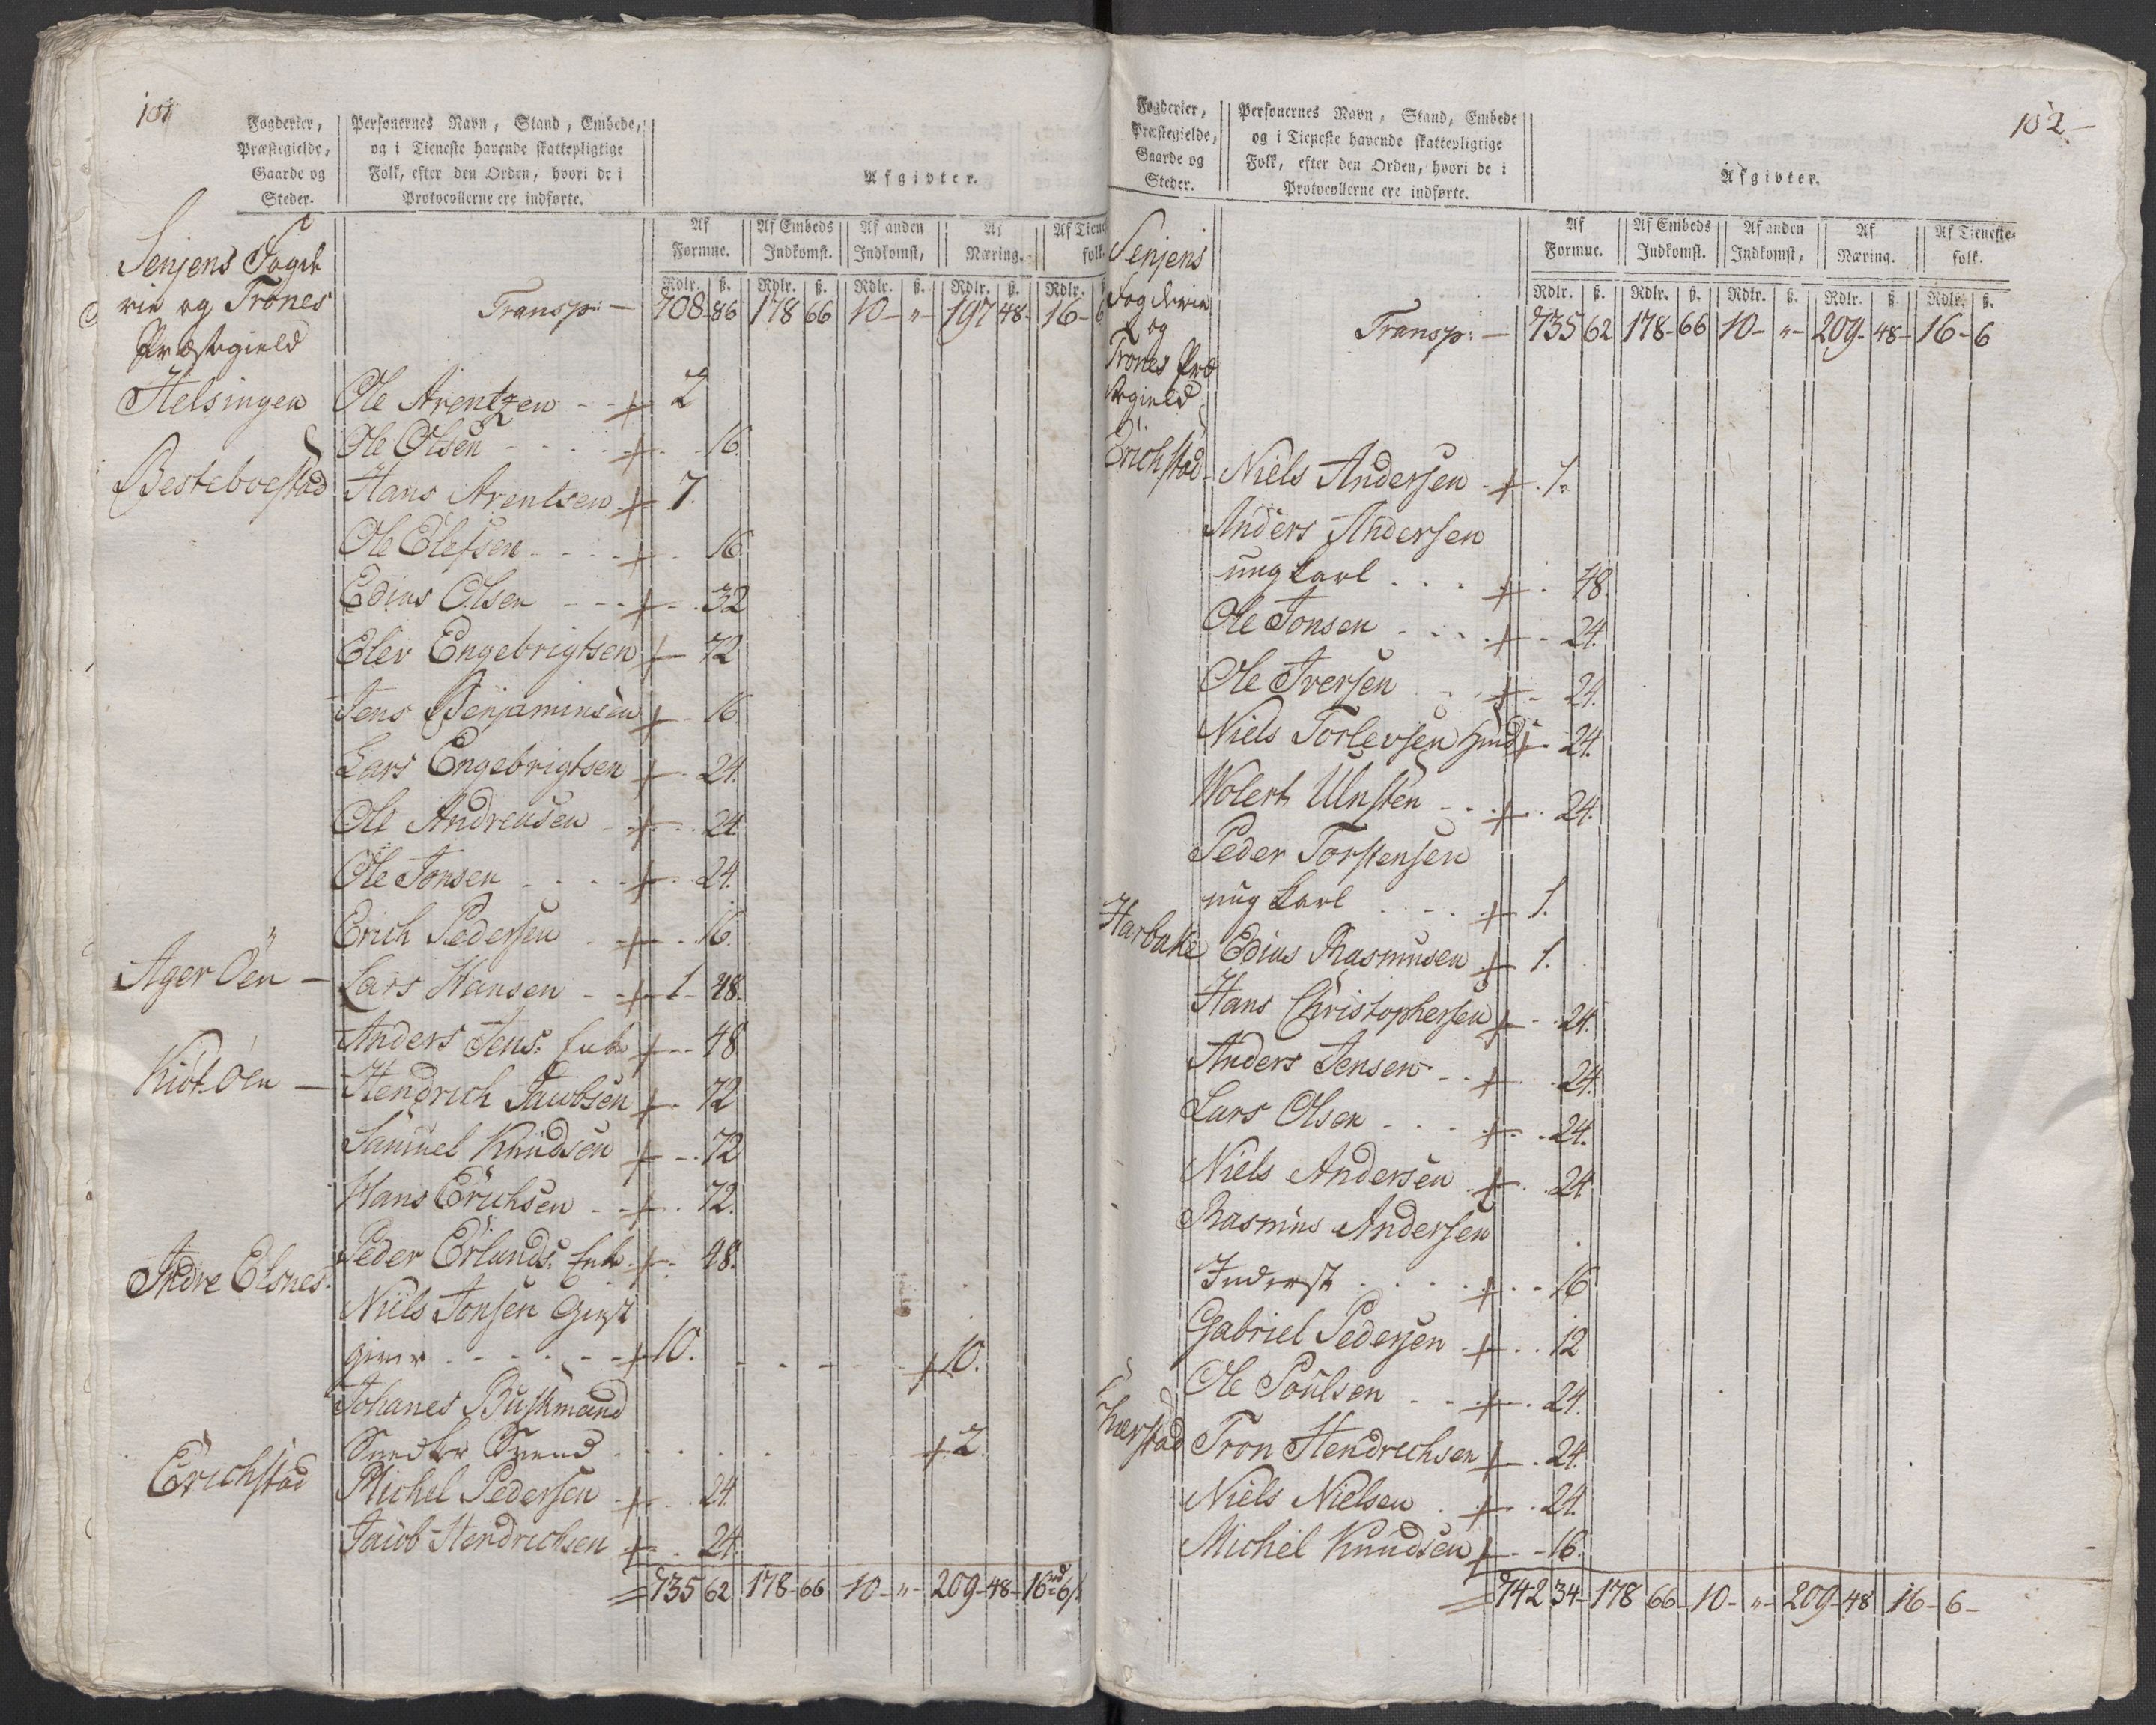 101
Fogderier, Præstegielde, Gaarde og Steder.
Personernes Navn, Stand, Embede, og i Tieneste havende skattepligtige Folk, efter den Orden, hvori de i Protocollerne ere indførte.
Afgivter.
Af Formue. Af Embeds Indkomst. Af anden Indkomst, Af Næring. Af Tiene folk.
Rdlr. ß. Rdlr. ß. Rdlr. ß. Rdlr. ß. Rdlr.
Senjens Fogde
rie og Trones
Præstegield
Transp: — 708 86 178 66 10 - " - 197 48 - 16 - 6
Helsingen Ole Arentzen - - + 2
Ole Olsen - - - + - 16.
Besteboestad Hans Arentsen + 7.
Ole Elefsen - - - + - 16
Edias Olsen - - - + - 32
Elev Engebrigtsen + - 72
Jens Benjaminsen + - 16
Lars Engebrigtsen + - 24.
Ole Andreasen - + - 24
Ole Jonsen - - - + - 24.
Erich Pedersen - + - 16.
Ager Öen — Lars Hansen - + 1 - 48.
Anders Jens: + - - 48
Kiöt Öen — Hendrich Jacobsen + - 72
Samuel Knudsen + - 72
Hans Erichsen - + - 72.
Peder Erlunds: + - 48.
Indre Elsnes. Niels Jonsen Giest
giver - - - - - + 10. - - - + 10.
Johanes Buskmand
- - - - + 2.
Erichstad Michel Pedersen + - 24.
Jacob Hendrichsen + - 24.
= 735 62 178 - 66 10 - " - 209 - 48 - 16 rd 6 ß
102 —
Fogderier, Præstegielde, Gaarde og Steder.
Personernes Navn, Stand, Embede og i Tieneste havende skattepligtige Folk, efter den Orden, hvori de i Protocollerne ere indførte.
Afgivter.
Af Formue. Af Embeds Indkomst. Af anden Indkomst, Af Næring. Af Tieneste-folk.
Rdlr. ß. Rdlr. ß. Rdlr. ß. Rdlr. ß. Rdlr. ß.
Senjens
Fogderie
og
Trones Præ
stegield
Transp: — 735 62 178 - 66 10 - " - 209 - 48 - 16 - 6
Erichstad Niels Andersen - + - 1.
Anders Andersen
ung Karl - - - + - 48.
Ole Jonsen - - - + - 24.
Ole Iversen - + - 24.
Niels Torlevsen + - 24.
Wolert - - + - 24.
Peder Torstensen
ung Karl - - - + 1.
Harbake Edias Rasmusen + 1.
Hans Christophersen + - 24.
Anders Jensen - - + - 24.
Lars Olsen - - - + - 24.
Niels Andersen - + - 24
Rasmus Andersen
Inderst - - - + - 16
Gabriel Pedersen - + - 12
Ole Poulsen - - + - 24.
Tron Hendrichsen + - 24.
Niels Nielsen - + - 24.
Michel Knudsen + - 16.
= 742 34 - 178 66 - 10 - " - 209 - 48 16 - 6 -